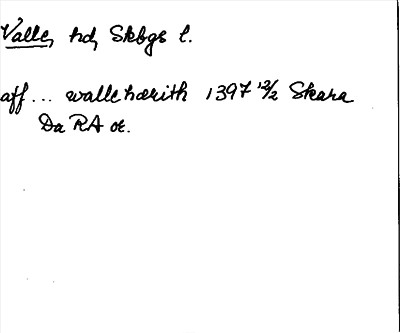 Valle, hd, Skbgs l.
aff ... wallehærith 1397 12/2 Skara
Da RA or.